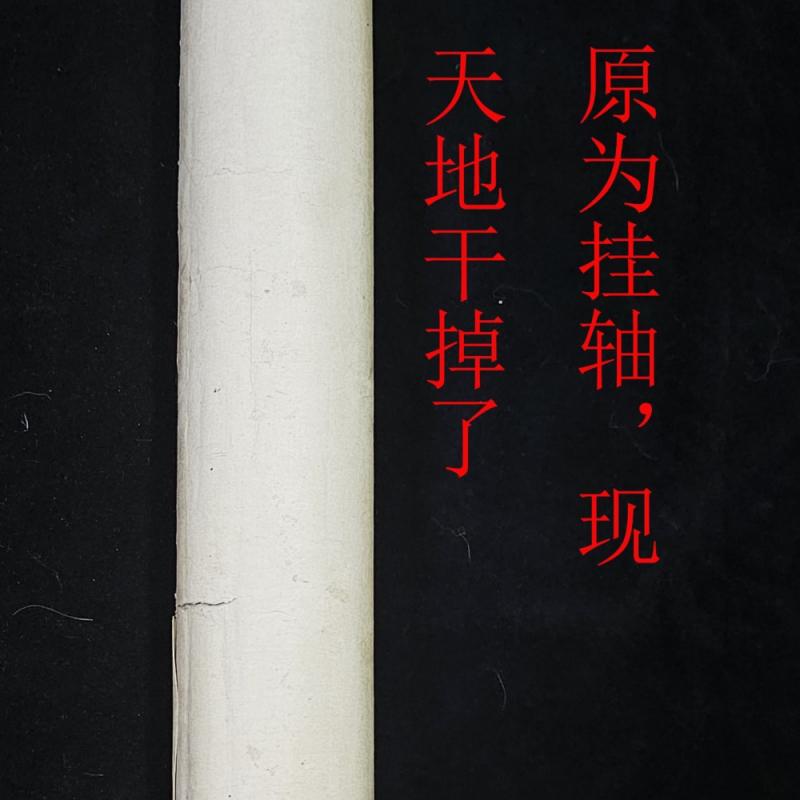 原为挂轴，现
天地干掉了